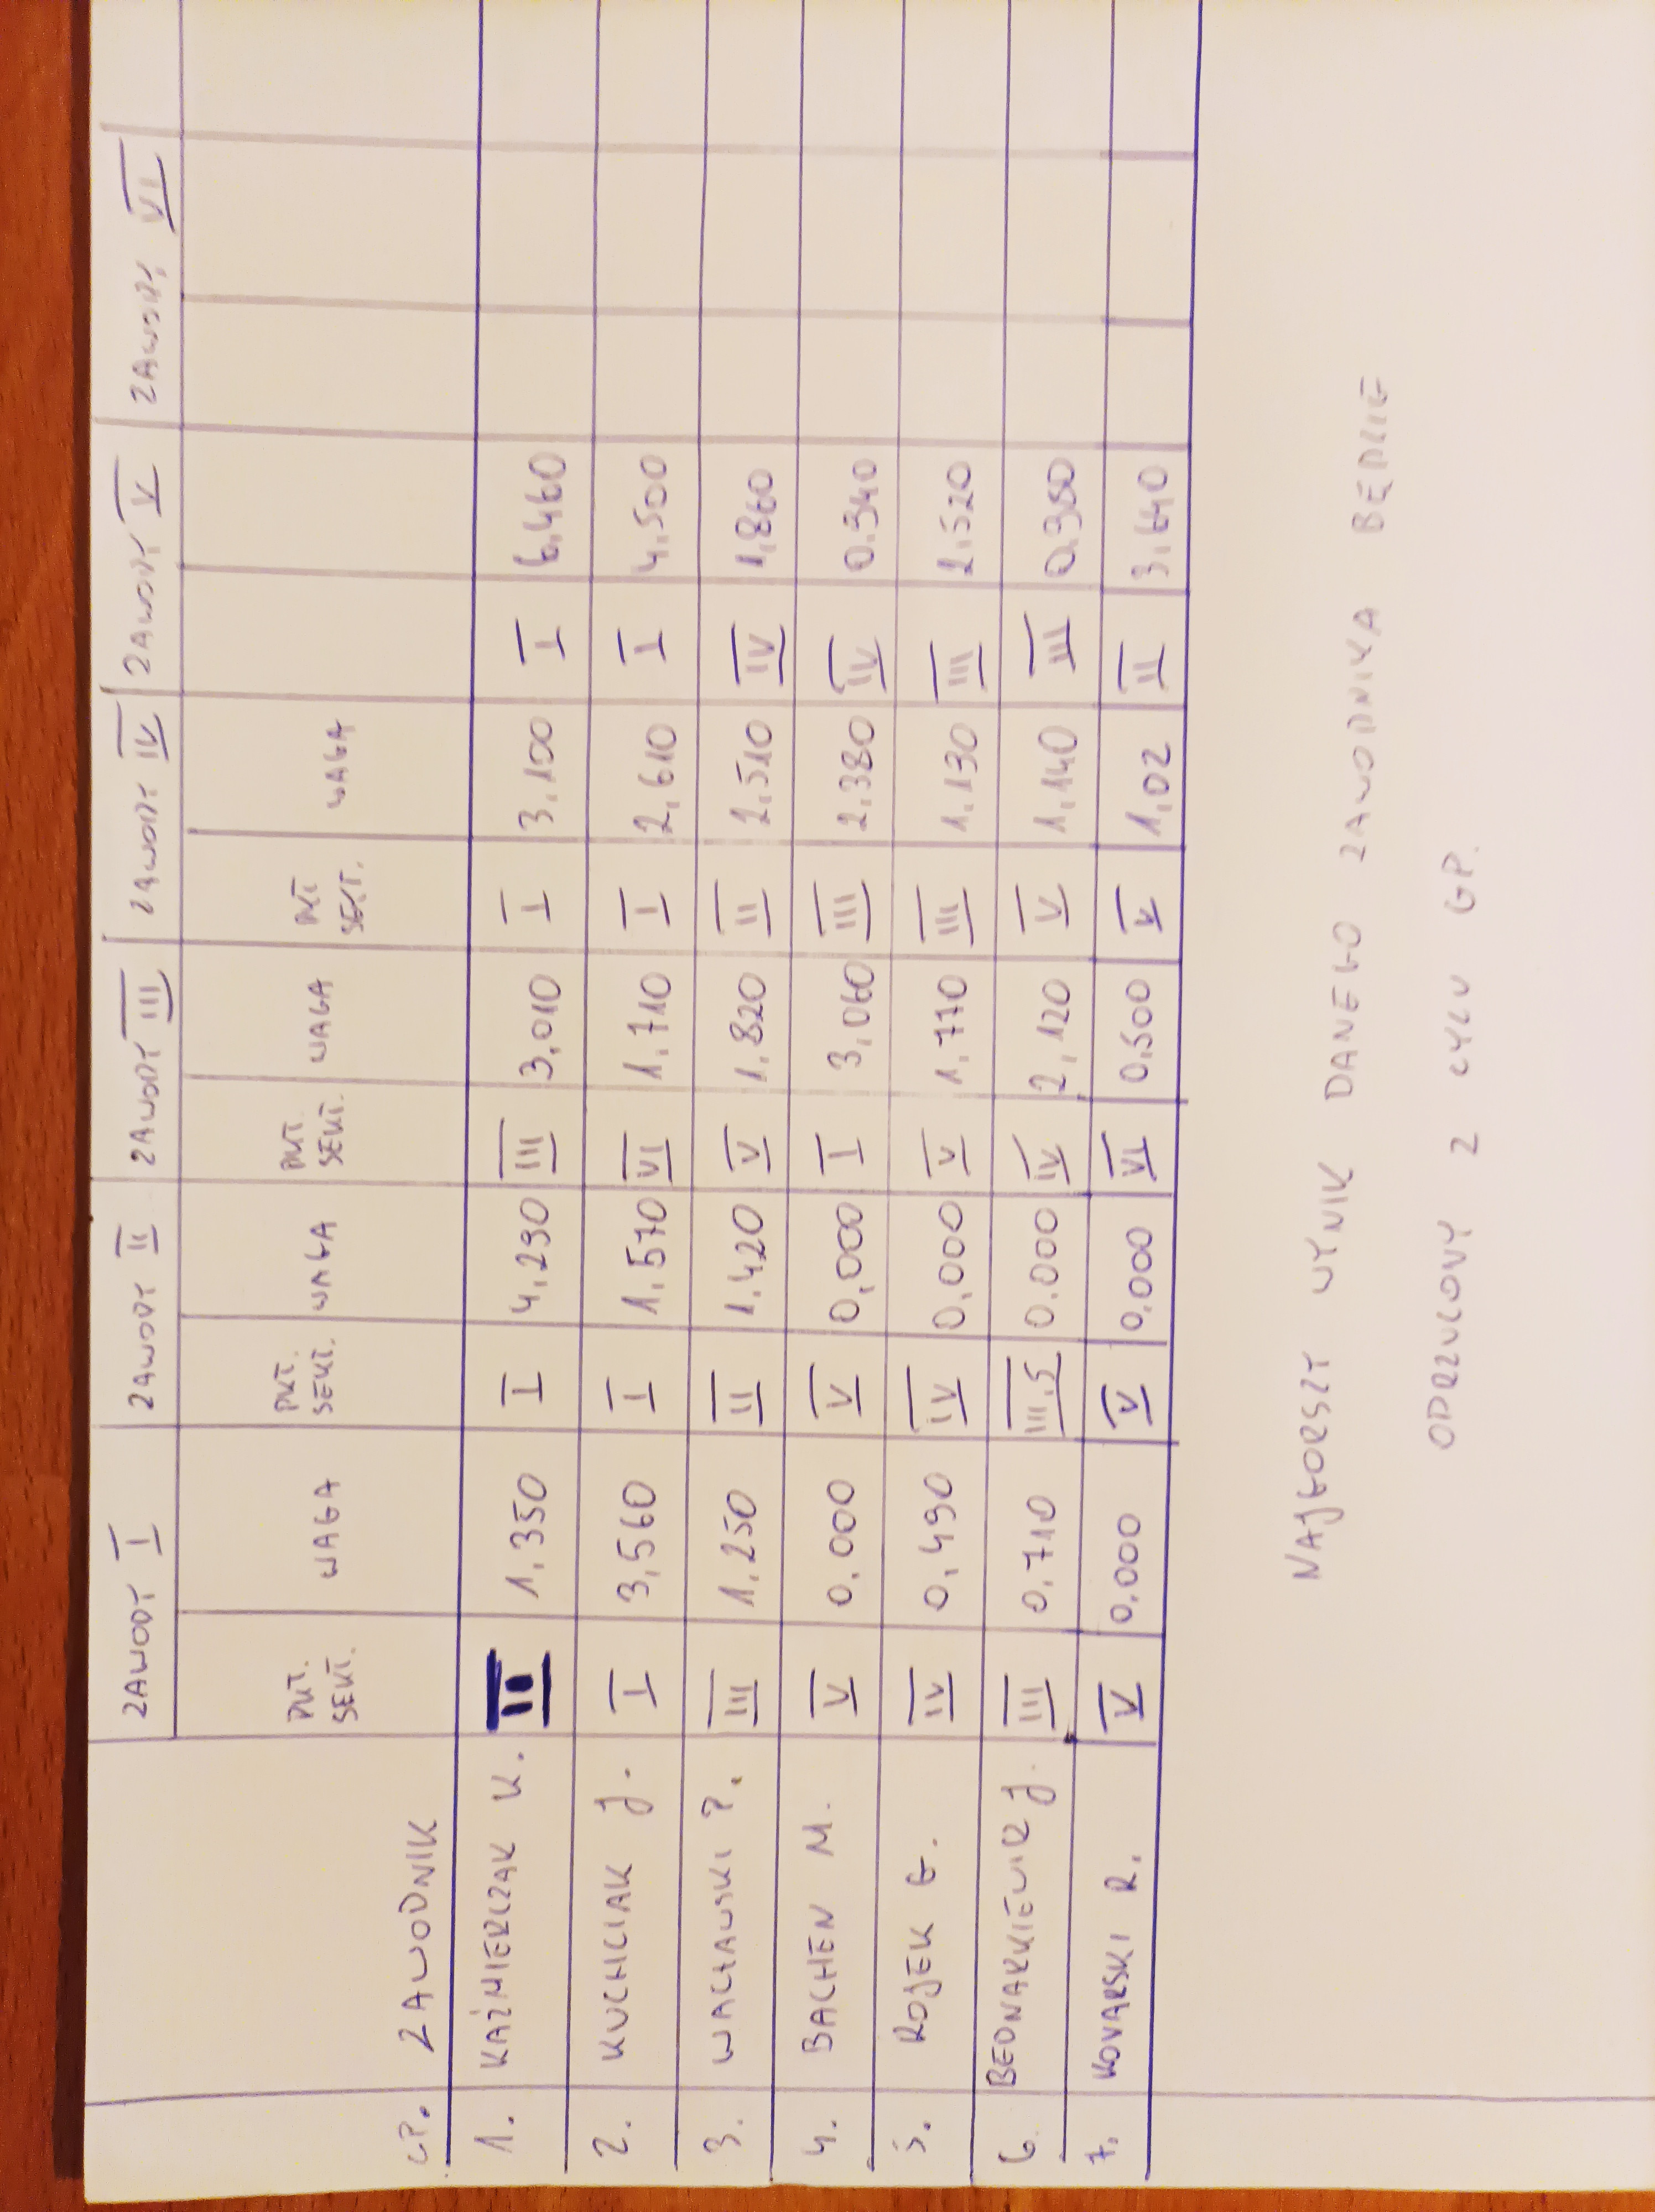 ZAWODY I ZAWODY II ZAWODY III ZAWODY IV ZAWODY V ZAWODY VI
LP. ZAWODNIK PKT. SEKT. WAGA PKT. SEKT. WAGA PKT. SEKT. WAGA PKT SEKT. WAGA
1. KAŹMIERCZAK K. II 1,350 I 4,290 III 3,010 I 3,100 I 6,460
2. KUCHCIAK J. I 3,560 I 1,570 VI 1,710 I 2,610 I 4,500
3. WACŁAWSKI P. III 1,250 II 1,420 V 1,820 II 2,510 IV 1,860
4. BACHEN M. V 0,000 V 0,000 I 3,060 III 2,380 IV 0,940
5. ROJEK G. IV 0,490 IV 0,000 V 1,770 III 1,130 III 2,520
6. BEDNARKIEWICZ J. III 0,710 III,5 0,000 IV 2,120 V 1,140 III 0,950
7. KOWARSKI R. V 0,000 V 0,000 VI 0,500 V 1,02 II 3,640
NAJGORSZY WYNIK DANEGO ZAWODNIKA BĘDZIE
ODRZUCONY Z CYLU GP.